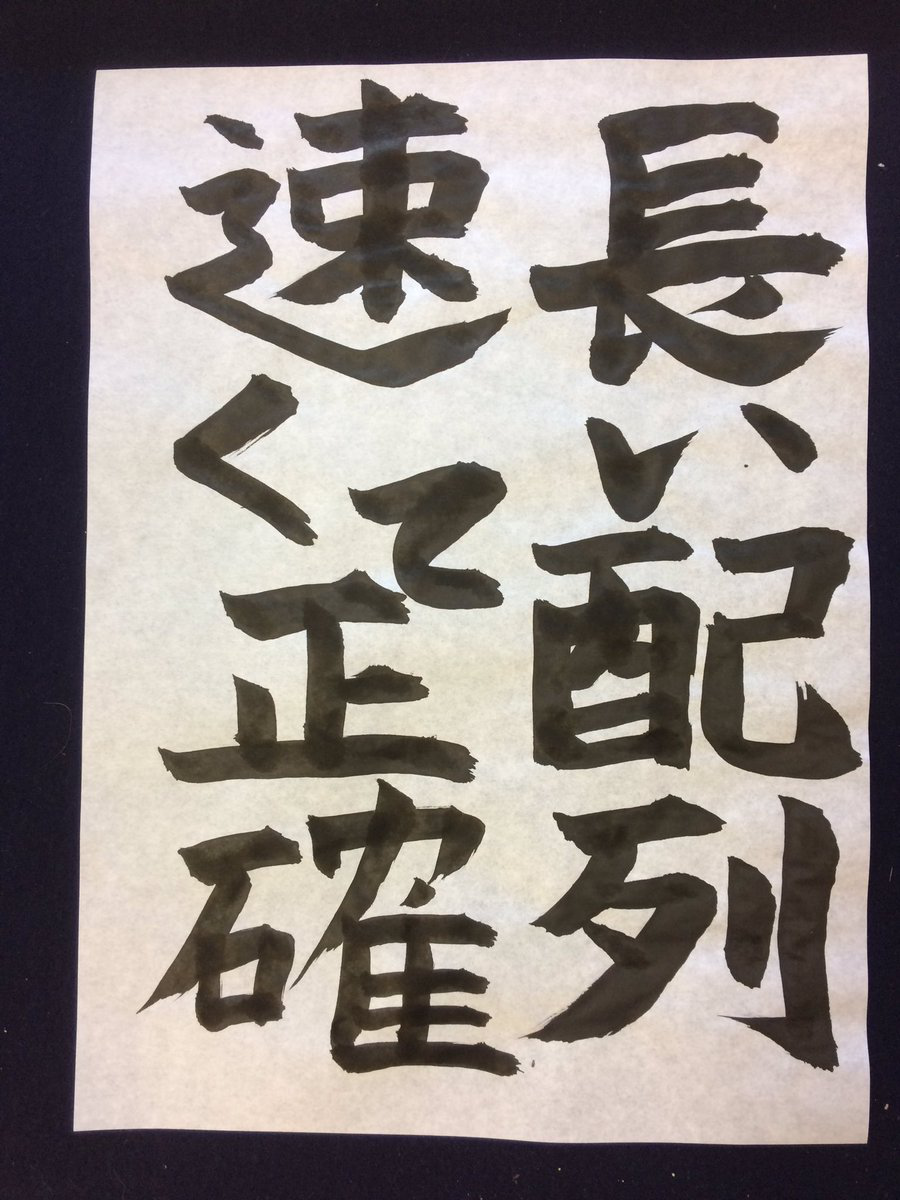 長い配列
速くて正確